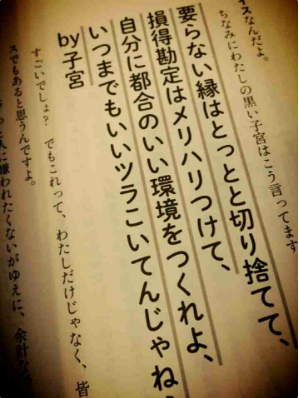 イスなんだよ。
ちなみにわたしの黒い子宮はこう言ってます
要らない縁はとっとと切り捨てて、
損得勘定はメリハリつけて、
自分に都合のいい環境をつくれよ、
いつまでもいいツラこいてんじゃね
by子宮
すごいでしょ？ でもこれって、わたしだけじゃなく、皆
スでもあると思うんですよ。
人に嫌われたくないがゆえに、余計な